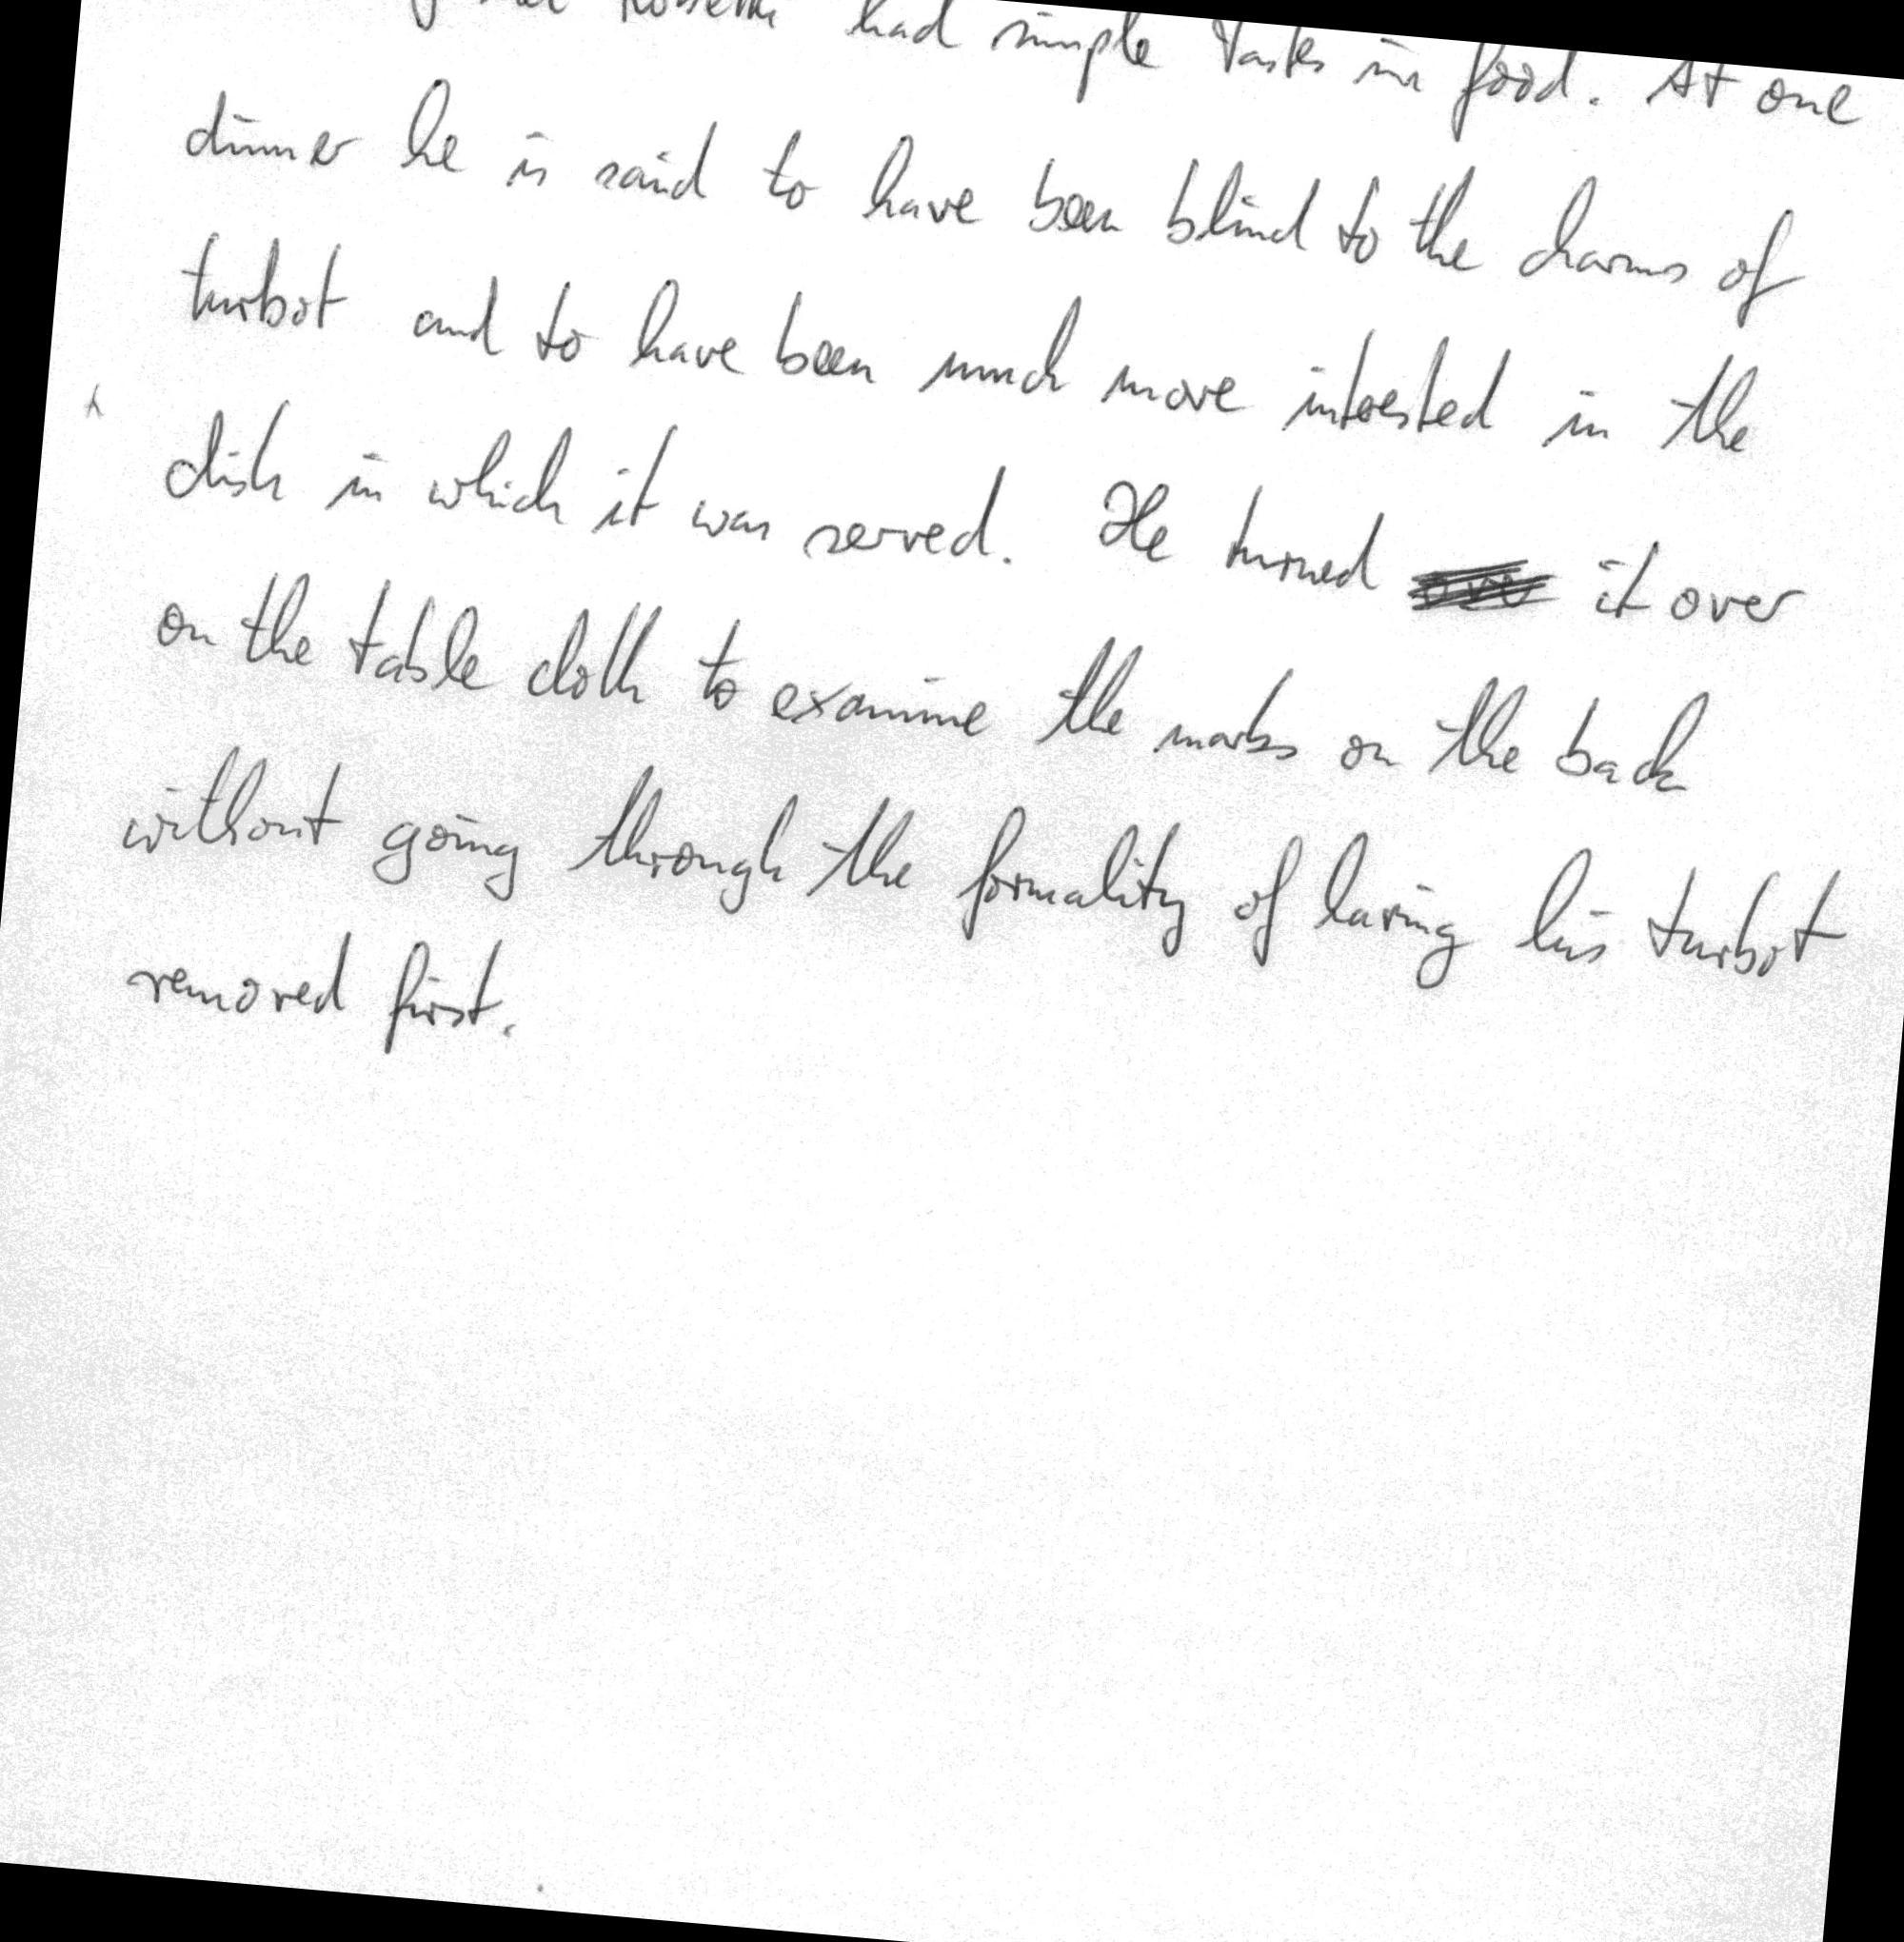 had simple tastes in food. At one
dinner he is said to have been blind to the charms of
turbot and to have been much more interested in the
dish in which it was served. He turned it over
on the table cloth to examine the marks on the back
without going through the formality of having his turbot
removed first.